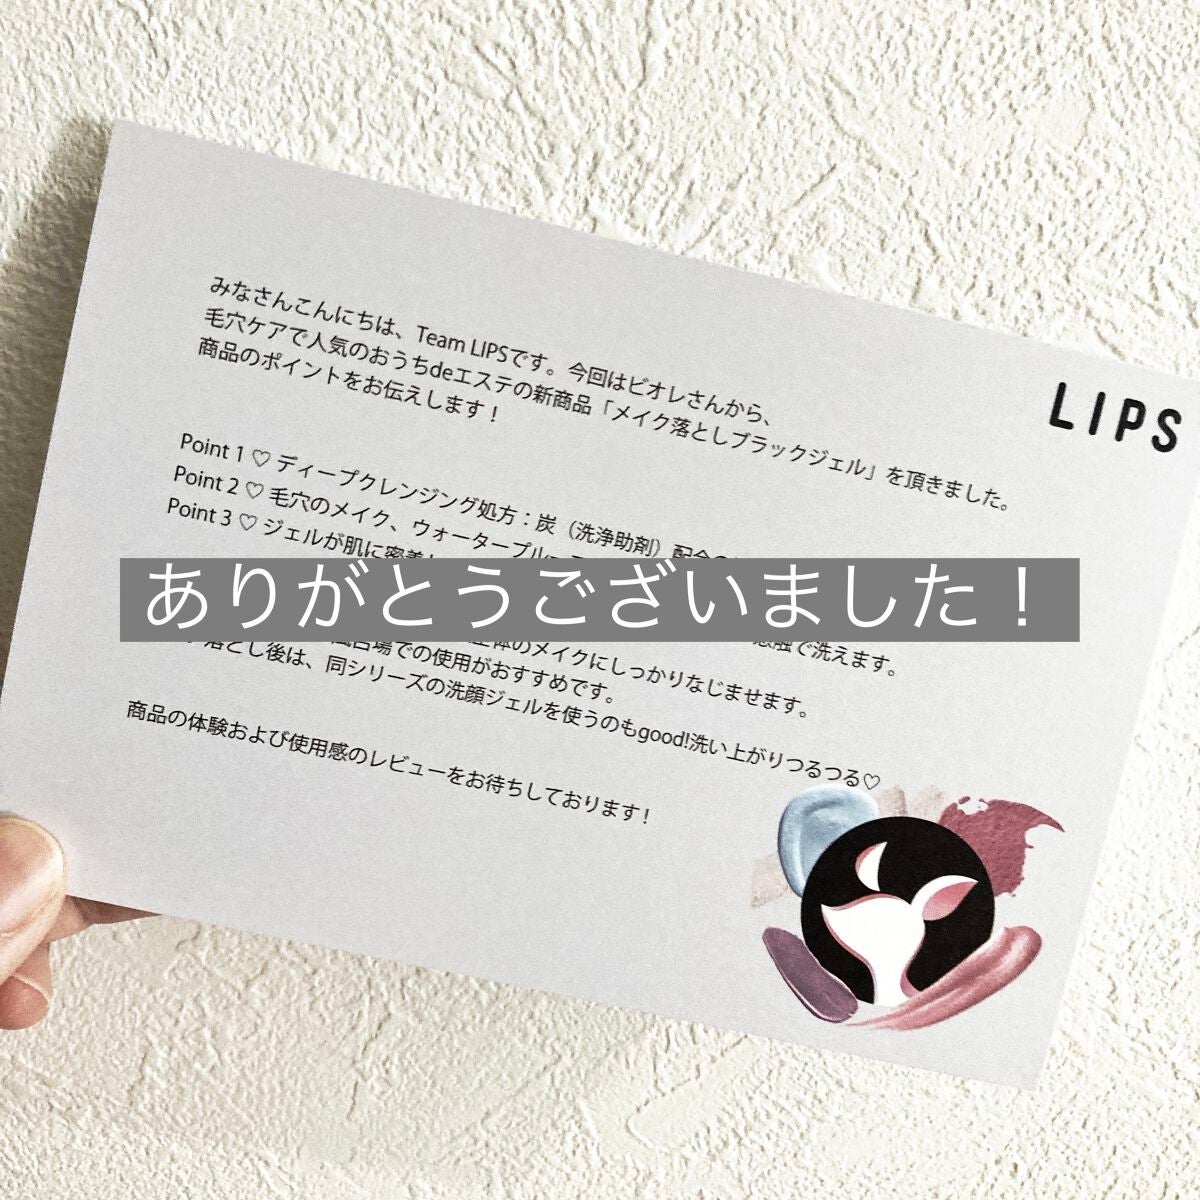 LIPS
みなさんこんにちは、Team LIPSです。今回はビオレさんから、
毛穴ケアで人気のおうちdeエステの新商品「メイク落としブラックジェル」を頂きました。
商品のポイントをお伝えします！
Point 1 ♡ ディープクレンジング処方：炭（洗浄助剤）配合
Point 2 ♡ 毛穴のメイク、ウォータープルー
Point 3 ♡ ジェルが肌に密着
ありがとうございました！
で洗えます。
のメイクにしっかりなじませます。
風呂場での使用がおすすめです。
落とし後は、同シリーズの洗顔ジェルを使うのもgood!洗い上がりつるつる♡
商品の体験および使用感のレビューをお待ちしております！